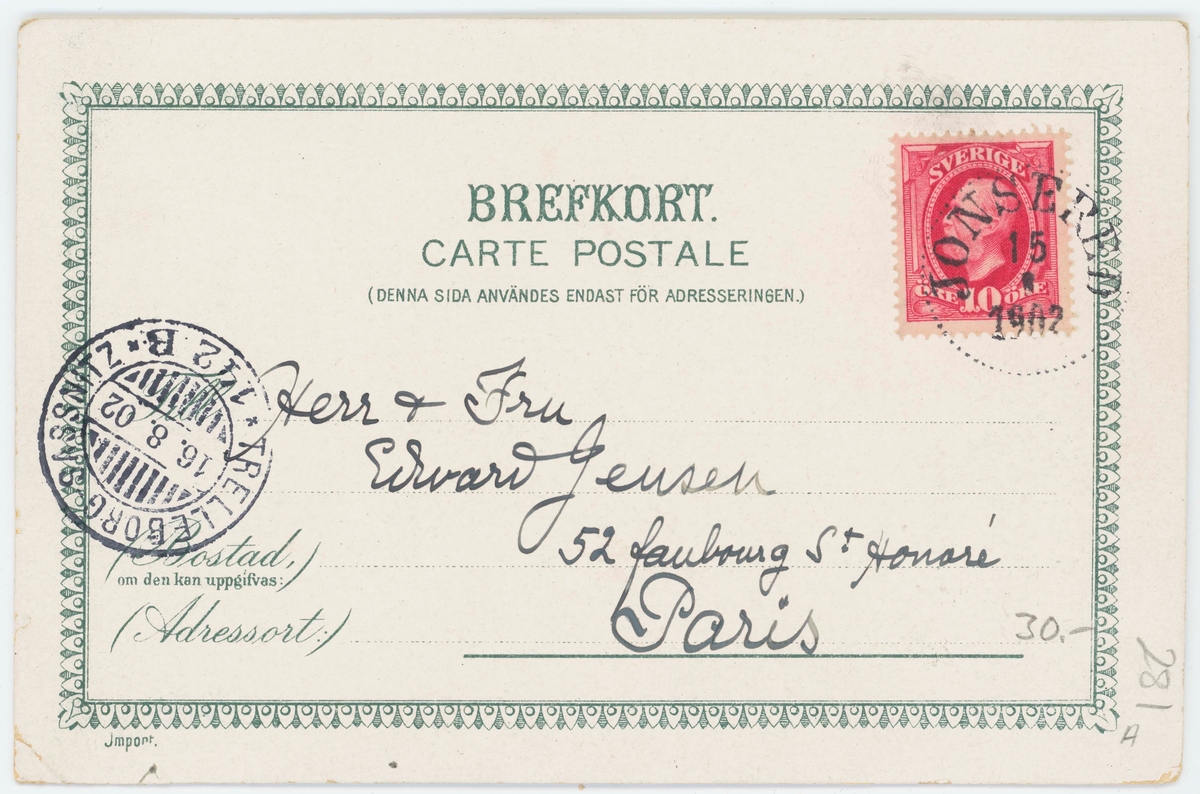 BREFKORT.
CARTE POSTALE
(DENNA SIDA ANVÄNDES ENDAST FÖR ADRESSERINGEN.)
SVERIGE
10 ÖRE
JONSERED
15
8
1902
TRELLEBORG SASSNITZ
* 1412 B *
16. 8. 02
Herr & Fru
Edvard Jensen
52 faubourg St Honoré
Paris
(Bostad,)
om den kan uppgifvas:
(Adressort:)
30.-
281
A
Import.